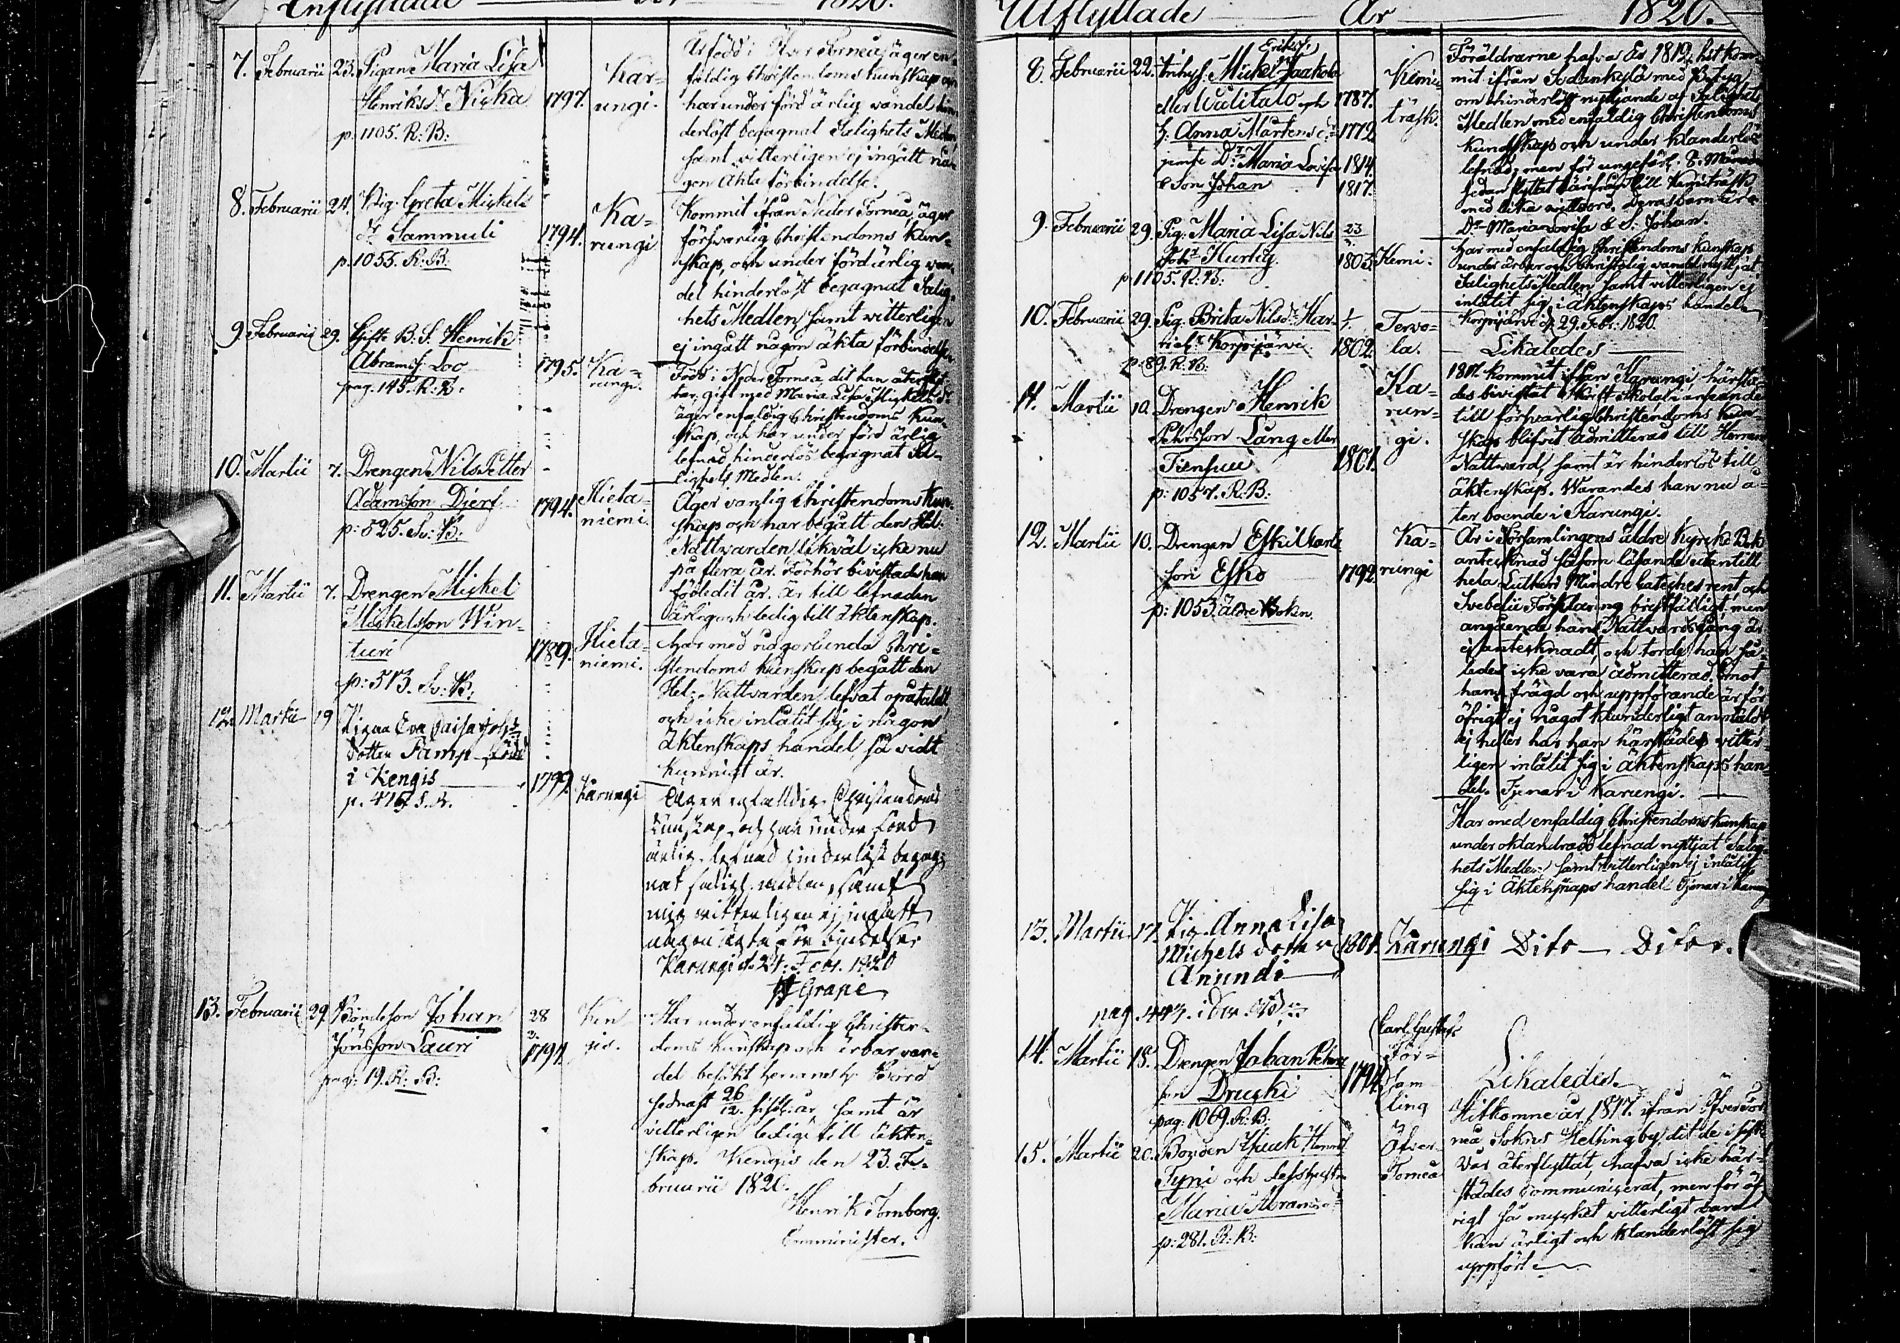 Inflyttade År 1820.
7. Februarii 23. Pigan Maria Lisa
Henriksdr Niska 1797. Kar-
ungi.
p. 1105. R. B.
Är född i Öfver Torneå, äger en-
faldig Christendoms kunskap och
har under förd ärlig wandel hin-
derlöst begagnat Salighets Medlen
samt vitterligen ej ingått nå-
gon ächta förbindelse.
8. Februarii 24. Pig. Greta Mickels
dr Sammuli 1794. Ka-
rungi
p. 1055. R. B.
Kommit ifrån Neder Torneå, äger
försvarlig Christendoms kun-
skap, och under förd ärlig wan-
del hinderlöst begagnat Salig-
hets Medlen samt witterligen
ej ingått någon äkta förbindelse.
9. Februarii 29. Gifte B. S. Henrik
Abramss. Loo 1795. Ka-
rungi.
pag. 145. R. B.
Född i Neder Torneå, dit han återflyt-
tar, gift med Maria Lisa Mickelsdr
äger enfaldig Christendoms kun-
skap, och har under förd ärlig
lefnad hinderlös begagnat Sa-
lighets Medlen.
10. Martii 7. Drengen Nils Petter
Adamsson Djerf 1794. Hieta-
niemi.
p: 895. Sv: B.
Äger vanlig Christendoms kun-
skap och har begått den Hel.
Nattvarden likväl icke nu
på flera år. Förhör bivistade han
sistledit år. Är till lefnaden
ärlig och ledig till äktenskap.
11. Martii 7. Drengen Mickel
Mickelsson Win-
turi 1789. Hieta-
niemi.
p: 513. Sv: B.
har med någorlunda Chri-
stendoms kunskap begått den
Hel. Nattvarden, lefvat opåtaldt
och icke inlåtit sig i någon
äktenskaps handel, så vidt
kunnigt är.
12. Martii 19 Pigan Eva Caisa
dotter Tamp född
i Kengis 1799. Karungi
p. 416. S. B.
Äger enfalldig Christendoms
kunskap, och har under förd
ärlig lefnad hinderlöst begag-
nat saligh. medlen, samt
mig vitterligen ej ingått
någon ägta förbindelse
Karungi d. 21. Febr. 1820
Grape
13. Februarii 29. Bondeson Johan
Jönsson Lauri 28
1791. Ken-
gis.
pag: 19. R: B:
Har under enfaldig Christen-
doms kunskap och ärbar van-
del besökt Herrans H. Bord
sednast 26/12 sistl. år, samt är
vitterligen ledig till äkten-
skap. Kengis den 23. Fe-
bruarii 1820.
Henrik Fornberg.
Comminister.
Utflyttade År 1820.
8. Februarii 22. Inhys. Mickel Eriks. Jaakola
eller Walitalo och 1787. Kemi-
träsk.
h. Anna Mårtens dr 1772
jemte Dr Maria Lovisa 1814.
& Son Johan 1817.
Föräldrarne hafva År 1812 hit kom-
mit ifrån Sodankylä med Betyg
om ohinderligt nyttjande af Salighets
Medlen med enfaldig Christendoms
kundskap och under klanderlös
lefnad, men för ungefär 8. Månader
sedan flyttat härifrån till Kemiträsk
med lika wittsord. Deras barn är
Dr Maria Lovisa & S. Johan.
9. Februarii 29. Pig. Maria Lisa Nils
dotr Hurtig 23
1803. Kemi.
p. 1105. R. B.
har med enfaldig Christendoms kunskap
under ärbar och Christelig wandel nyttjat
Salighets Medlen samt vitterligen ej
inlåtit sig i äktenskaps handel.
Korpijärvi d. 29. Febr. 1820.
10. Februarii 29. Pig. Brita Nilsdr Har-
Korpijärvi 1802. Tervo-
la.
p: 89. R. B.
Likaledes
11. Martii 10. Drengen Henrik
Pehrsson Lång eller
Tiensuu 1801. Ka-
run-
gi.
p: 1057. R. B:
1817 kommit ifrån Karungi härstä-
des bivistat Skrift Skolan, i anseende
till försvarlig Christendoms kun-
skap blifvit admitterad till Herrans
Nattvard, samt är hinderlös till
äktenskap. Warandes han nu å-
ter boende i Karungi.
12. Martii 10. Drengen Eskil Carls
son Esko 1792. Ka-
rungi
p: 1053 äldre Boken
Är i Församlingens äldre Kyrcko Bok
antecknad såsom läsande utantill
hela Luthers Mindre Cateches rent och
Svebelii Förklaring bristfälligt, men
angående hans Nattvardsgång är
ej antecknadt, och torde han så-
ledes icke vara admitterad. Emot
hans frägd och uppförande är för
öfrigt ej något klanderligt anmäldt
ej heller har han härstädes vitter-
ligen inlåtit sig i äktenskaps han-
del. Tjenar i Karungi.
Har med enfaldig Christendoms kunskap
under oklandrad lefnad nyttjat Salig-
hets Medlen samt vitterligen ej inlåtit
sig i äktenskaps handel. Tjenar i Karungi
13. Martii 17. Pig. Anna Lisa
Michels dotter 1801. Karungi Dito — Dito.
Anundi
pag. 447. i den
14. Martii 18. Drengen Johan Pehrs
son Drucki 1794. Carl Gustafs
För-
sam
ling
pag: 1069. R. B:
Likaledes.
15. Martii 20. Bonden Isaak Henriks
Tyni och dess hustr. Öfver
Torneå
Maria Abramsdr
p: 281. R: B:
Hitkomne år 1817 ifrån Öfver Tor-
neå Sokns Hellingby, dit de i fjol
återflyttat, hafva icke här-
städes communicerat, men för öf-
rigt så mycket witterligt vara
kan ärligt och klanderlöst sig
uppfört.